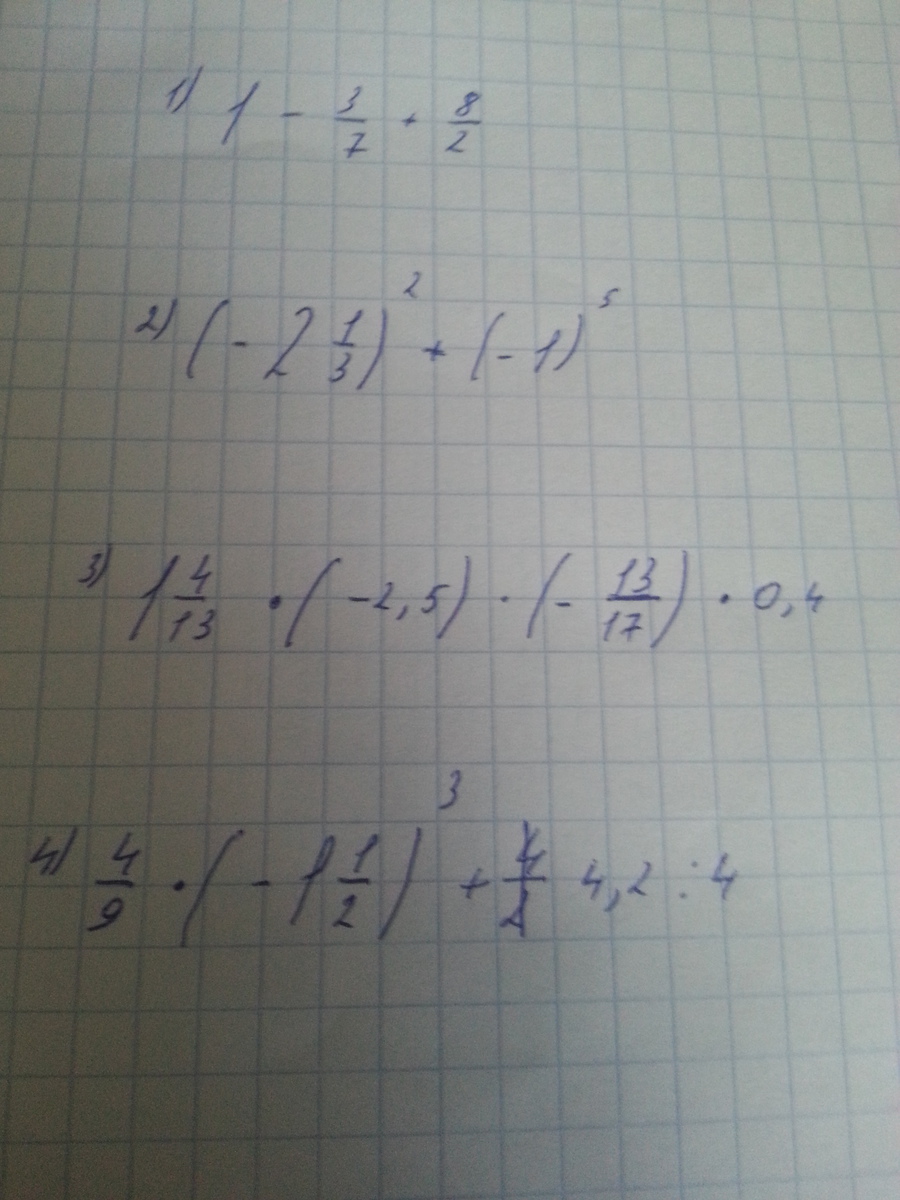 1) 1 - 3/7 + 8/2
2) (- 2 1/3)² + (- 1)⁵
3) 1 4/13 · (-2,5) · (- 13/17) · 0,4
4) 4/9 · (- 1 1/2)³ + 4,2 : 4